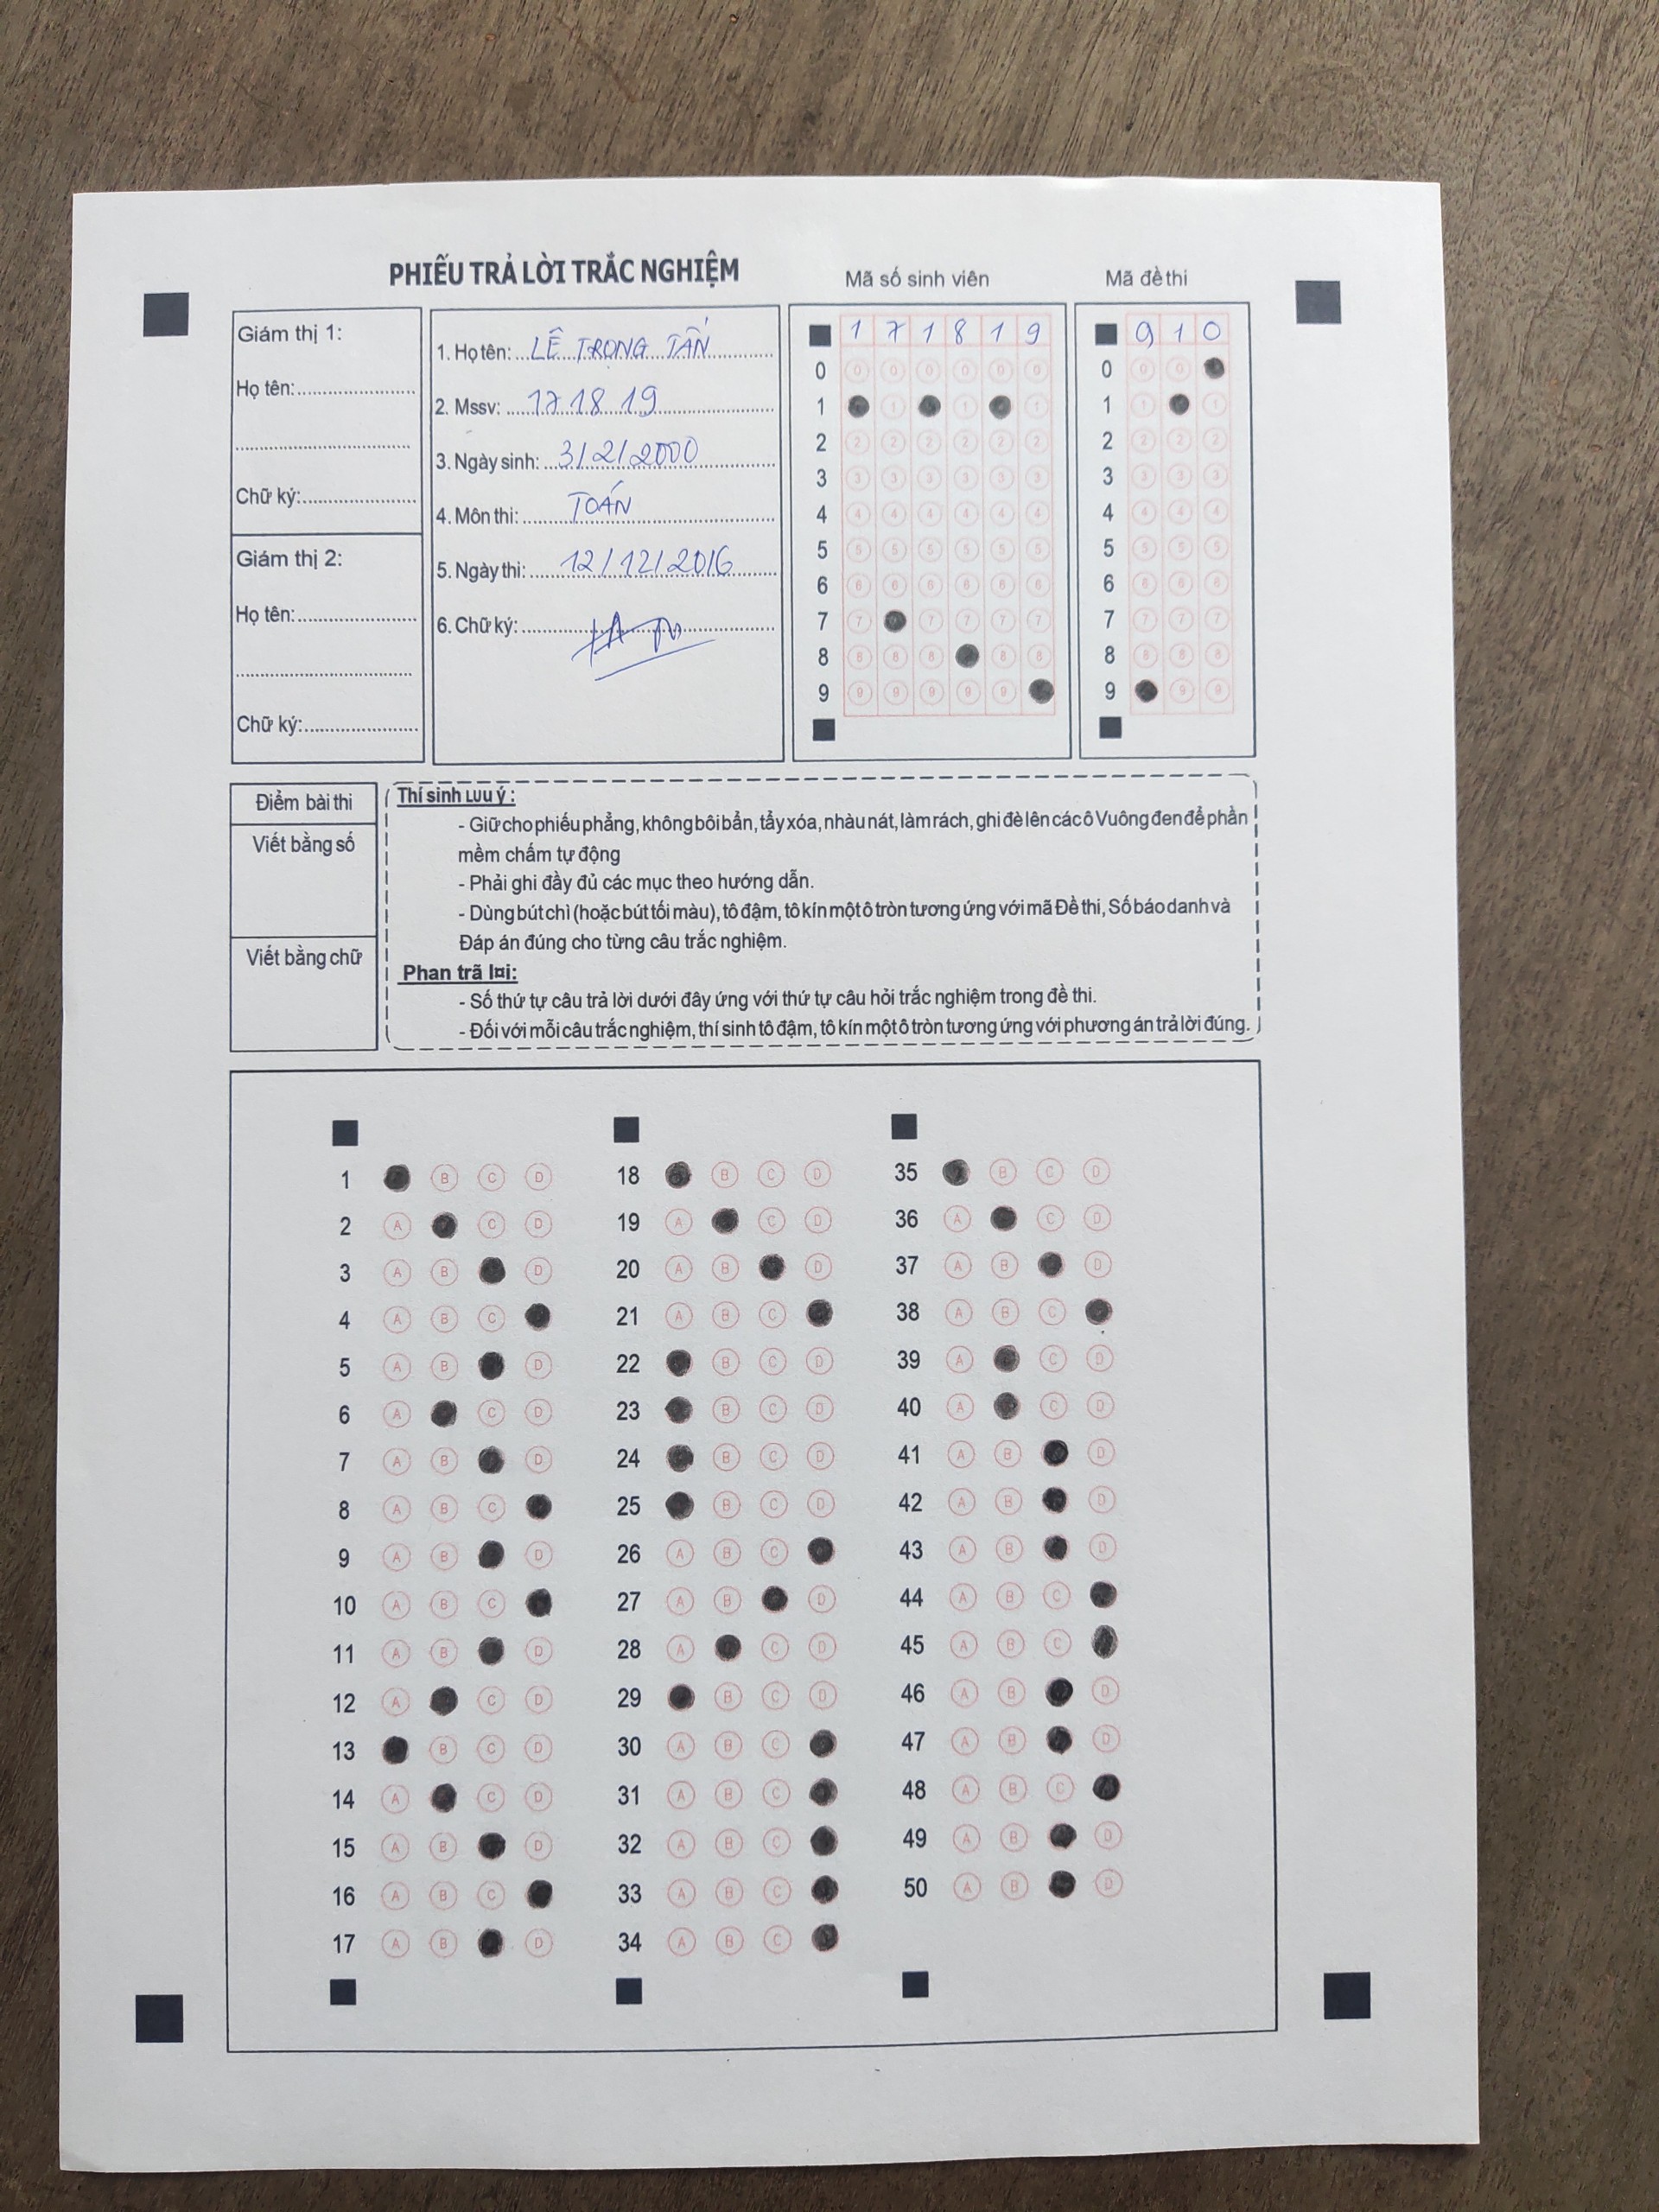 PHIẾU TRẢ LỜI TRẮC NGHIỆM
Mã số sinh viên
Mã đề thi
Giám thị 1:
Họ tên:
Chữ ký:
Giám thị 2:
Họ tên:
Chữ ký:
1. Họ tên: LÊ TRỌNG TẤN
2. Mssv: 17 18 19
3. Ngày sinh: 3/2/2000
4. Môn thi: TOÁN
5. Ngày thi: 12/12/2016
6. Chữ ký:
1 7 1 8 1 9
0 0 0 0 0 0 0
1 1 1 1
2 2 2 2 2 2 2
3 3 3 3 3 3 3
4 4 4 4 4 4 4
5 5 5 5 5 5 5
6 6 6 6 6 6 6
7 7 7 7 7 7
8 8 8 8 8 8
9 9 9 9 9 9
9 1 0
0 0 0
1 1 1
2 2 2 2
3 3 3 3
4 4 4 4
5 5 5 5
6 6 6 6
7 7 7 7
8 8 8 8
9 9 9
Điểm bài thi
Viết bằng số
Viết bằng chữ
Thí sinh Lưu ý :
- Giữ cho phiếu phẳng, không bôi bẩn, tẩy xóa, nhàu nát, làm rách, ghi đè lên các ô Vuông đen để phần
mềm chấm tự động
- Phải ghi đầy đủ các mục theo hướng dẫn.
- Dùng bút chì (hoặc bút tối màu), tô đậm, tô kín một ô tròn tương ứng với mã Đề thi, Số báo danh và
Đáp án đúng cho từng câu trắc nghiệm.
Phan trã l¤i:
- Số thứ tự câu trả lời dưới đây ứng với thứ tự câu hỏi trắc nghiệm trong đề thi.
- Đối với mỗi câu trắc nghiệm, thí sinh tô đậm, tô kín một ô tròn tương ứng với phương án trả lời đúng.
1 B C D
2 A C D
3 A B D
4 A B C
5 A B D
6 A C D
7 A B D
8 A B C
9 A B D
10 A B C
11 A B D
12 A C D
13 B C D
14 A C D
15 A B D
16 A B C
17 A B D
18 B C D
19 A C D
20 A B D
21 A B C
22 B C D
23 B C D
24 B C D
25 B C D
26 A B C
27 A B D
28 A C D
29 B C D
30 A B C
31 A B C
32 A B C
33 A B C
34 A B C
35 B C D
36 A C D
37 A B D
38 A B C
39 A C D
40 A C D
41 A B D
42 A B D
43 A B D
44 A B C
45 A B C
46 A B D
47 A B D
48 A B C
49 A B D
50 A B D